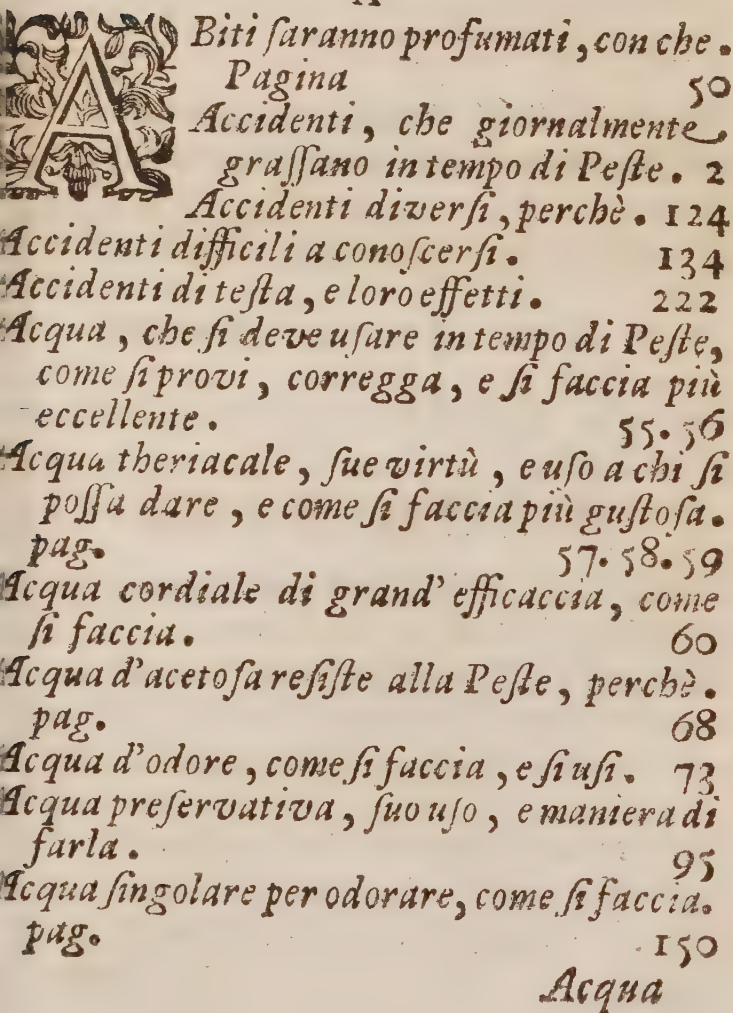 A
ABiti ſaranno profumati, con che.
Pagina 50
Accidenti, che giornalmente
graſſano in tempo di Peſte. 2
Accidenti diverſi, perchè. 124
Accidenti difficili a conoſcerſi. 134
Accidenti di teſta, e loro effetti. 222
Acqua, che ſi deve uſare in tempo di Peſte,
come ſi provi, corregga, e ſi faccia più
eccellente. 55. 56
Acqua theriacale, ſue virtù, e uſo a chi ſi
poſſa dare, e come ſi faccia più guſtoſa.
pag. 57. 58. 59
Acqua cordiale di grand' efficaccia, come
ſi faccia. 60
Acqua d'acetoſa reſiſte alla Peſte, perchè.
pag. 68
Acqua d'odore, come ſi faccia, e ſi uſi. 73
Acqua preſervativa, ſuo uſo, e maniera di
farla. 95
Acqua ſingolare per odorare, come ſi faccia.
pag. 150
Acqua